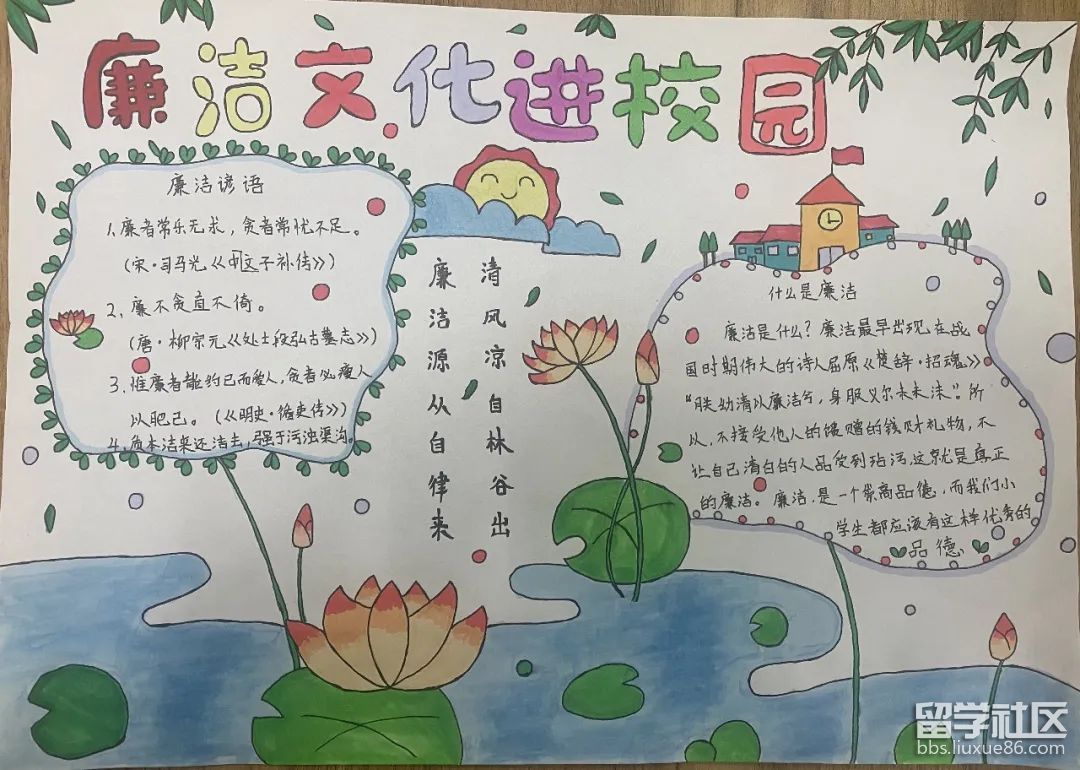 廉洁文化进校园
廉洁谚语
1、廉者常乐无求，贪者常忧不足。
（宋·司马光《文子补传》）
2、廉不贪直不倚。
（唐·柳宗元《处士段弘古墓志》）
3、惟廉者能约己而爱人，贪者必瘦人
以肥己。（《明史·循吏传》）
4、质本洁来还洁去，强于污浊渠沟。
清风凉自林谷出
廉洁源从自律来
什么是廉洁
廉洁是什么？廉洁最早出现在战
国时期伟大的诗人屈原《楚辞·招魂》
“朕幼清以廉洁兮，身服义尔未沫”。所
以，不接受他人的馈赠的钱财礼物，不
让自己清白的人品受到玷污，这就是真正
的廉洁。廉洁，是一个崇高品德，而我们小
学生都应该有这样优秀的
品德
留学社区
bbs.liuxue86.com